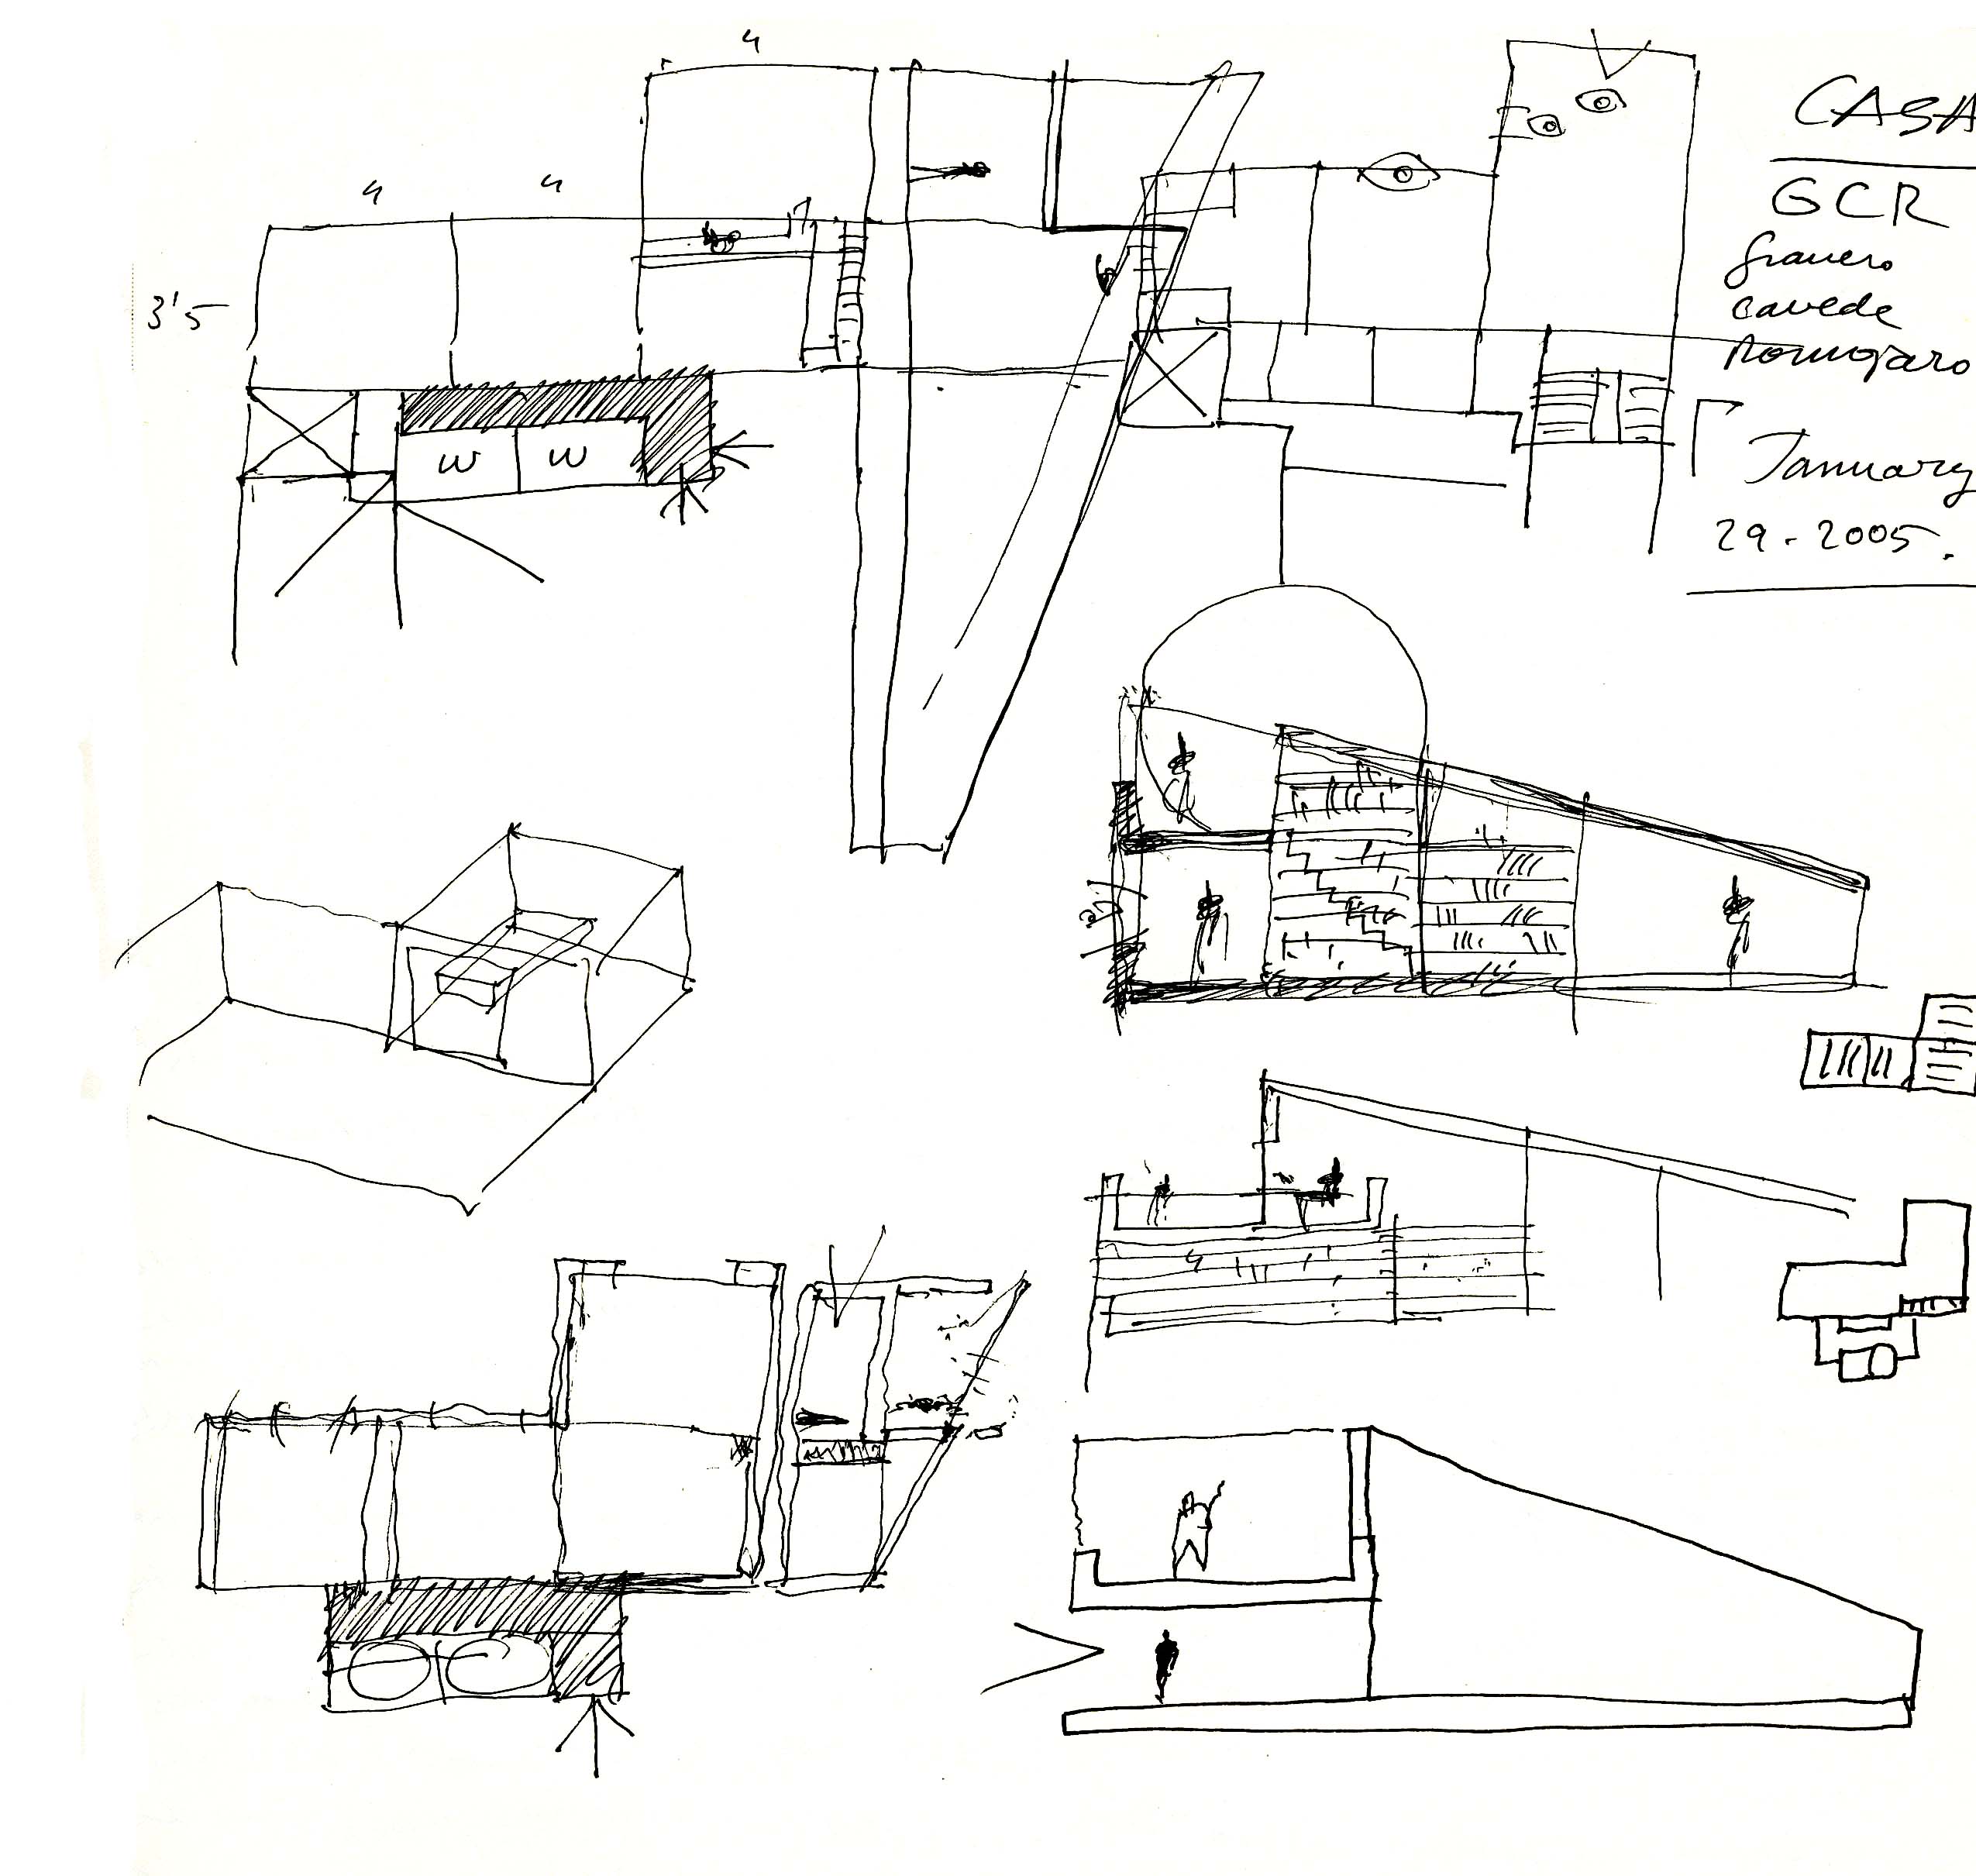 4
CASA
4 4
GCR
3'5
cavede
W W
January
29-2005.